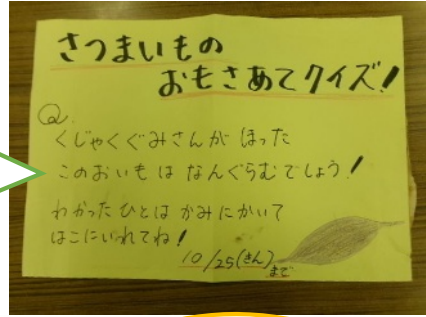 さつまいもの
おもさあてクイズ!
Q.
くじゃくぐみさんが ほった
このおいもは なんぐらむでしょう!
わかったひとは かみにかいて
はこにいれてね!
10/25(きん)
まで